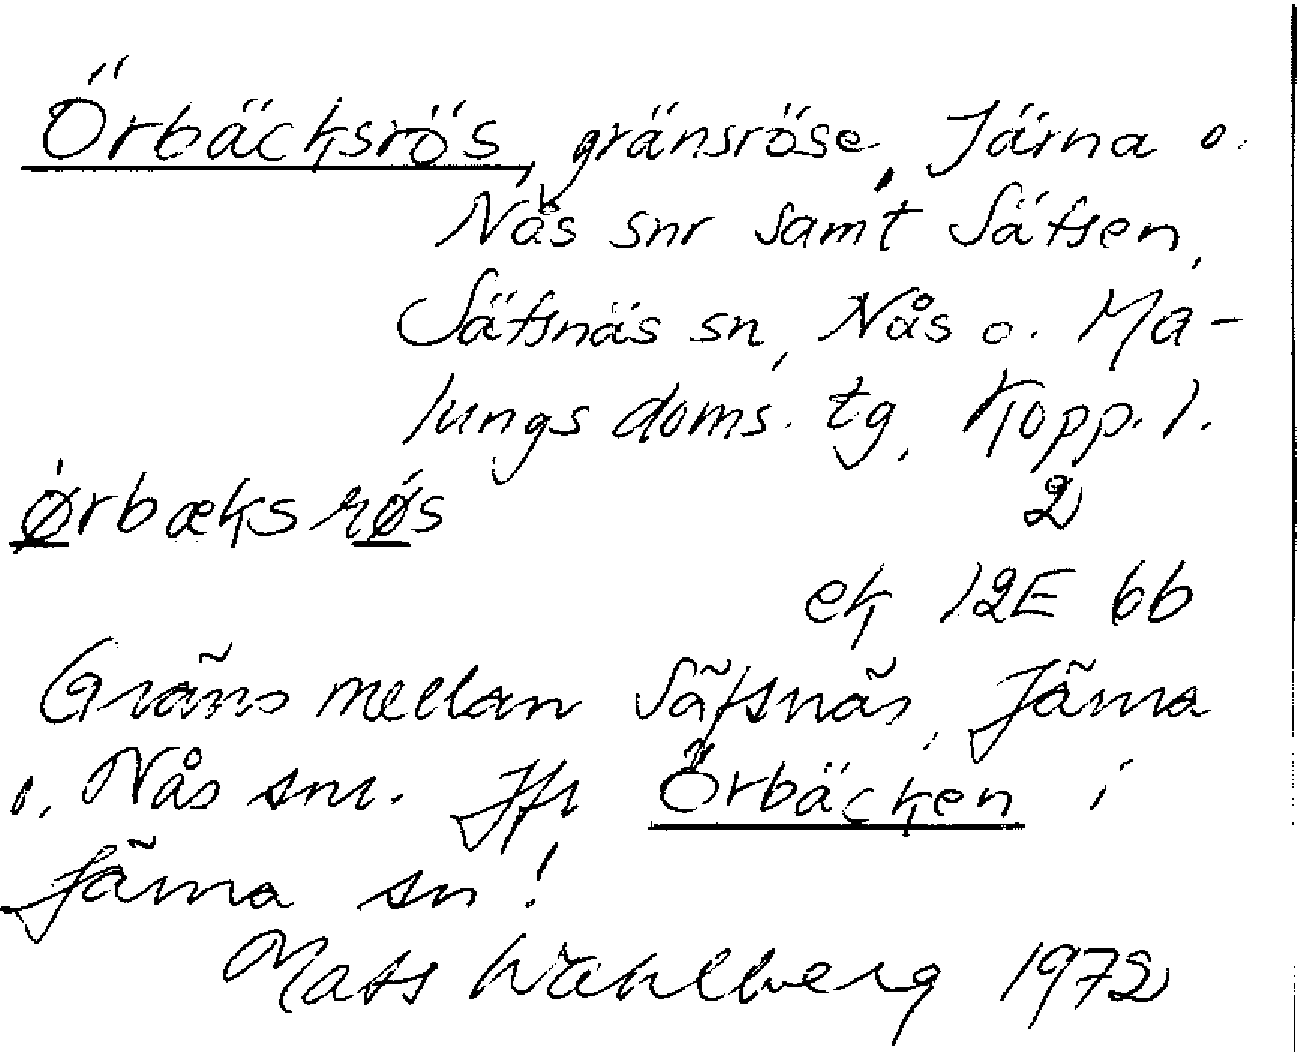 Örbäcksrös, gränsröse, Järna o.
Nås snr samt Säfsen,
Säfsnäs sn, Nås o. Ma-
lungs doms. tg, Kopp. l.
ørbæksrøs 2
ek 12E 6b
Gräns mellan Säfsnäs, Järna
o. Nås snr. Jfr Örbäcken i
Järna sn!
Mats Wahlberg 1972